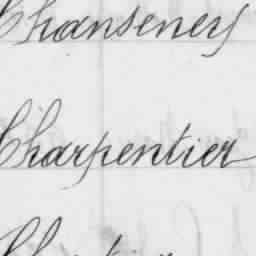 Chanseney
Charpentier